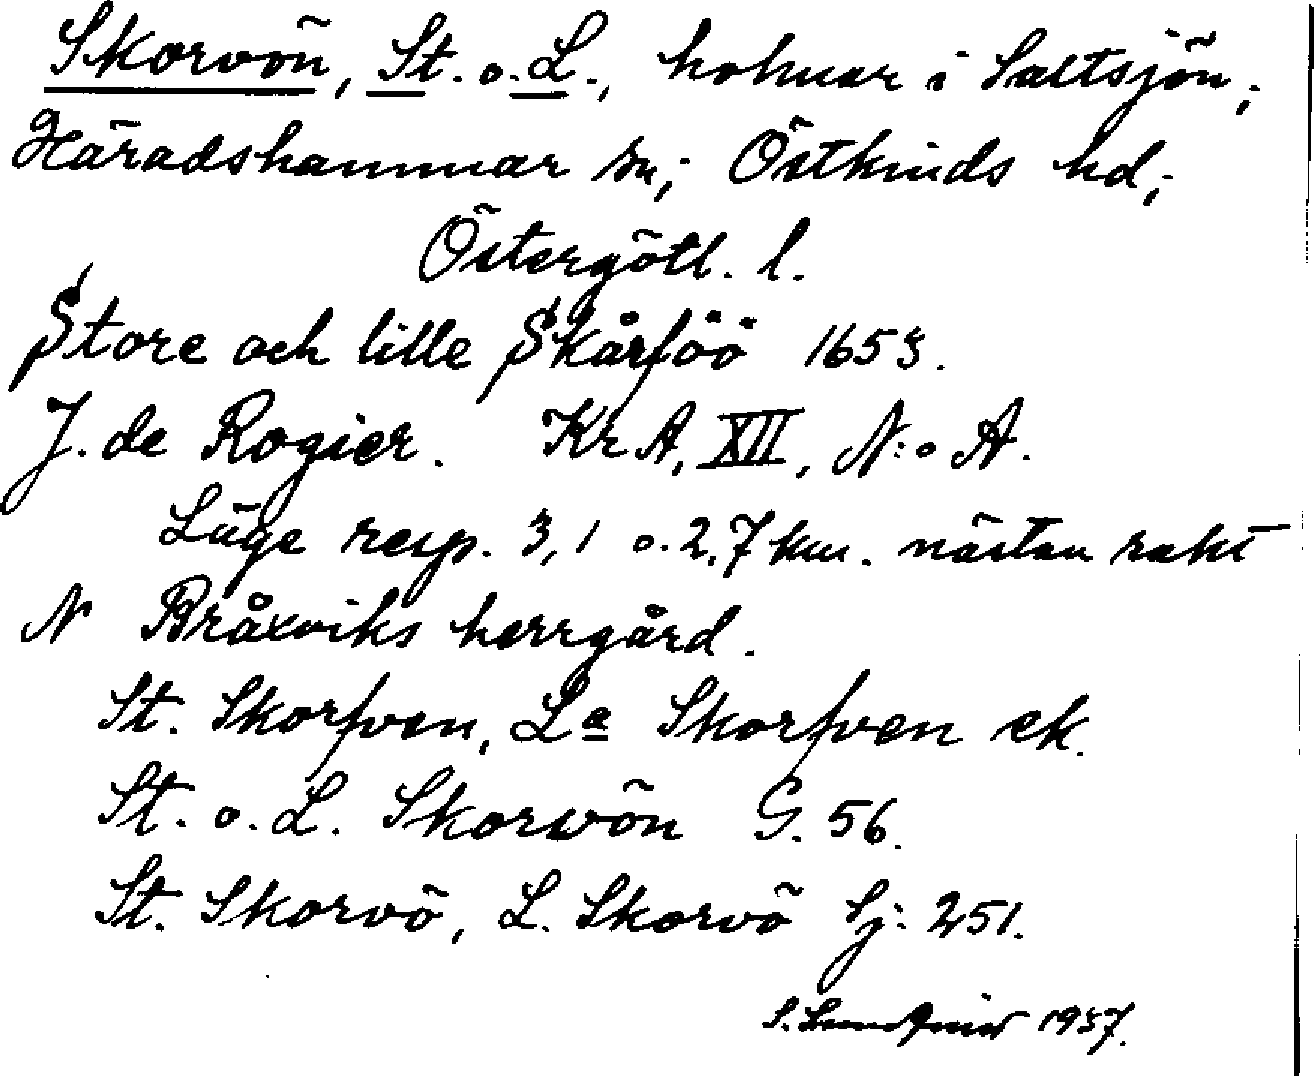 Skorvön, St. o. L., holmar i Saltsjön;
Häradshammar sn; Östkinds hd;
Östergötl. l.
Store och lille Skårföö 1653.
J. de Rogier. Kr. A, XII, N:o A.
Läge resp. 3,1 o. 2,7 km. nästan rakt
N Bråxviks herrgård.
St. Skorfven, La Skorfven ek.
St. o. L. Skorvön G. 56.
St. Skorvö, L. Skorvö Sj: 251.
S. Lundqvist 1937.